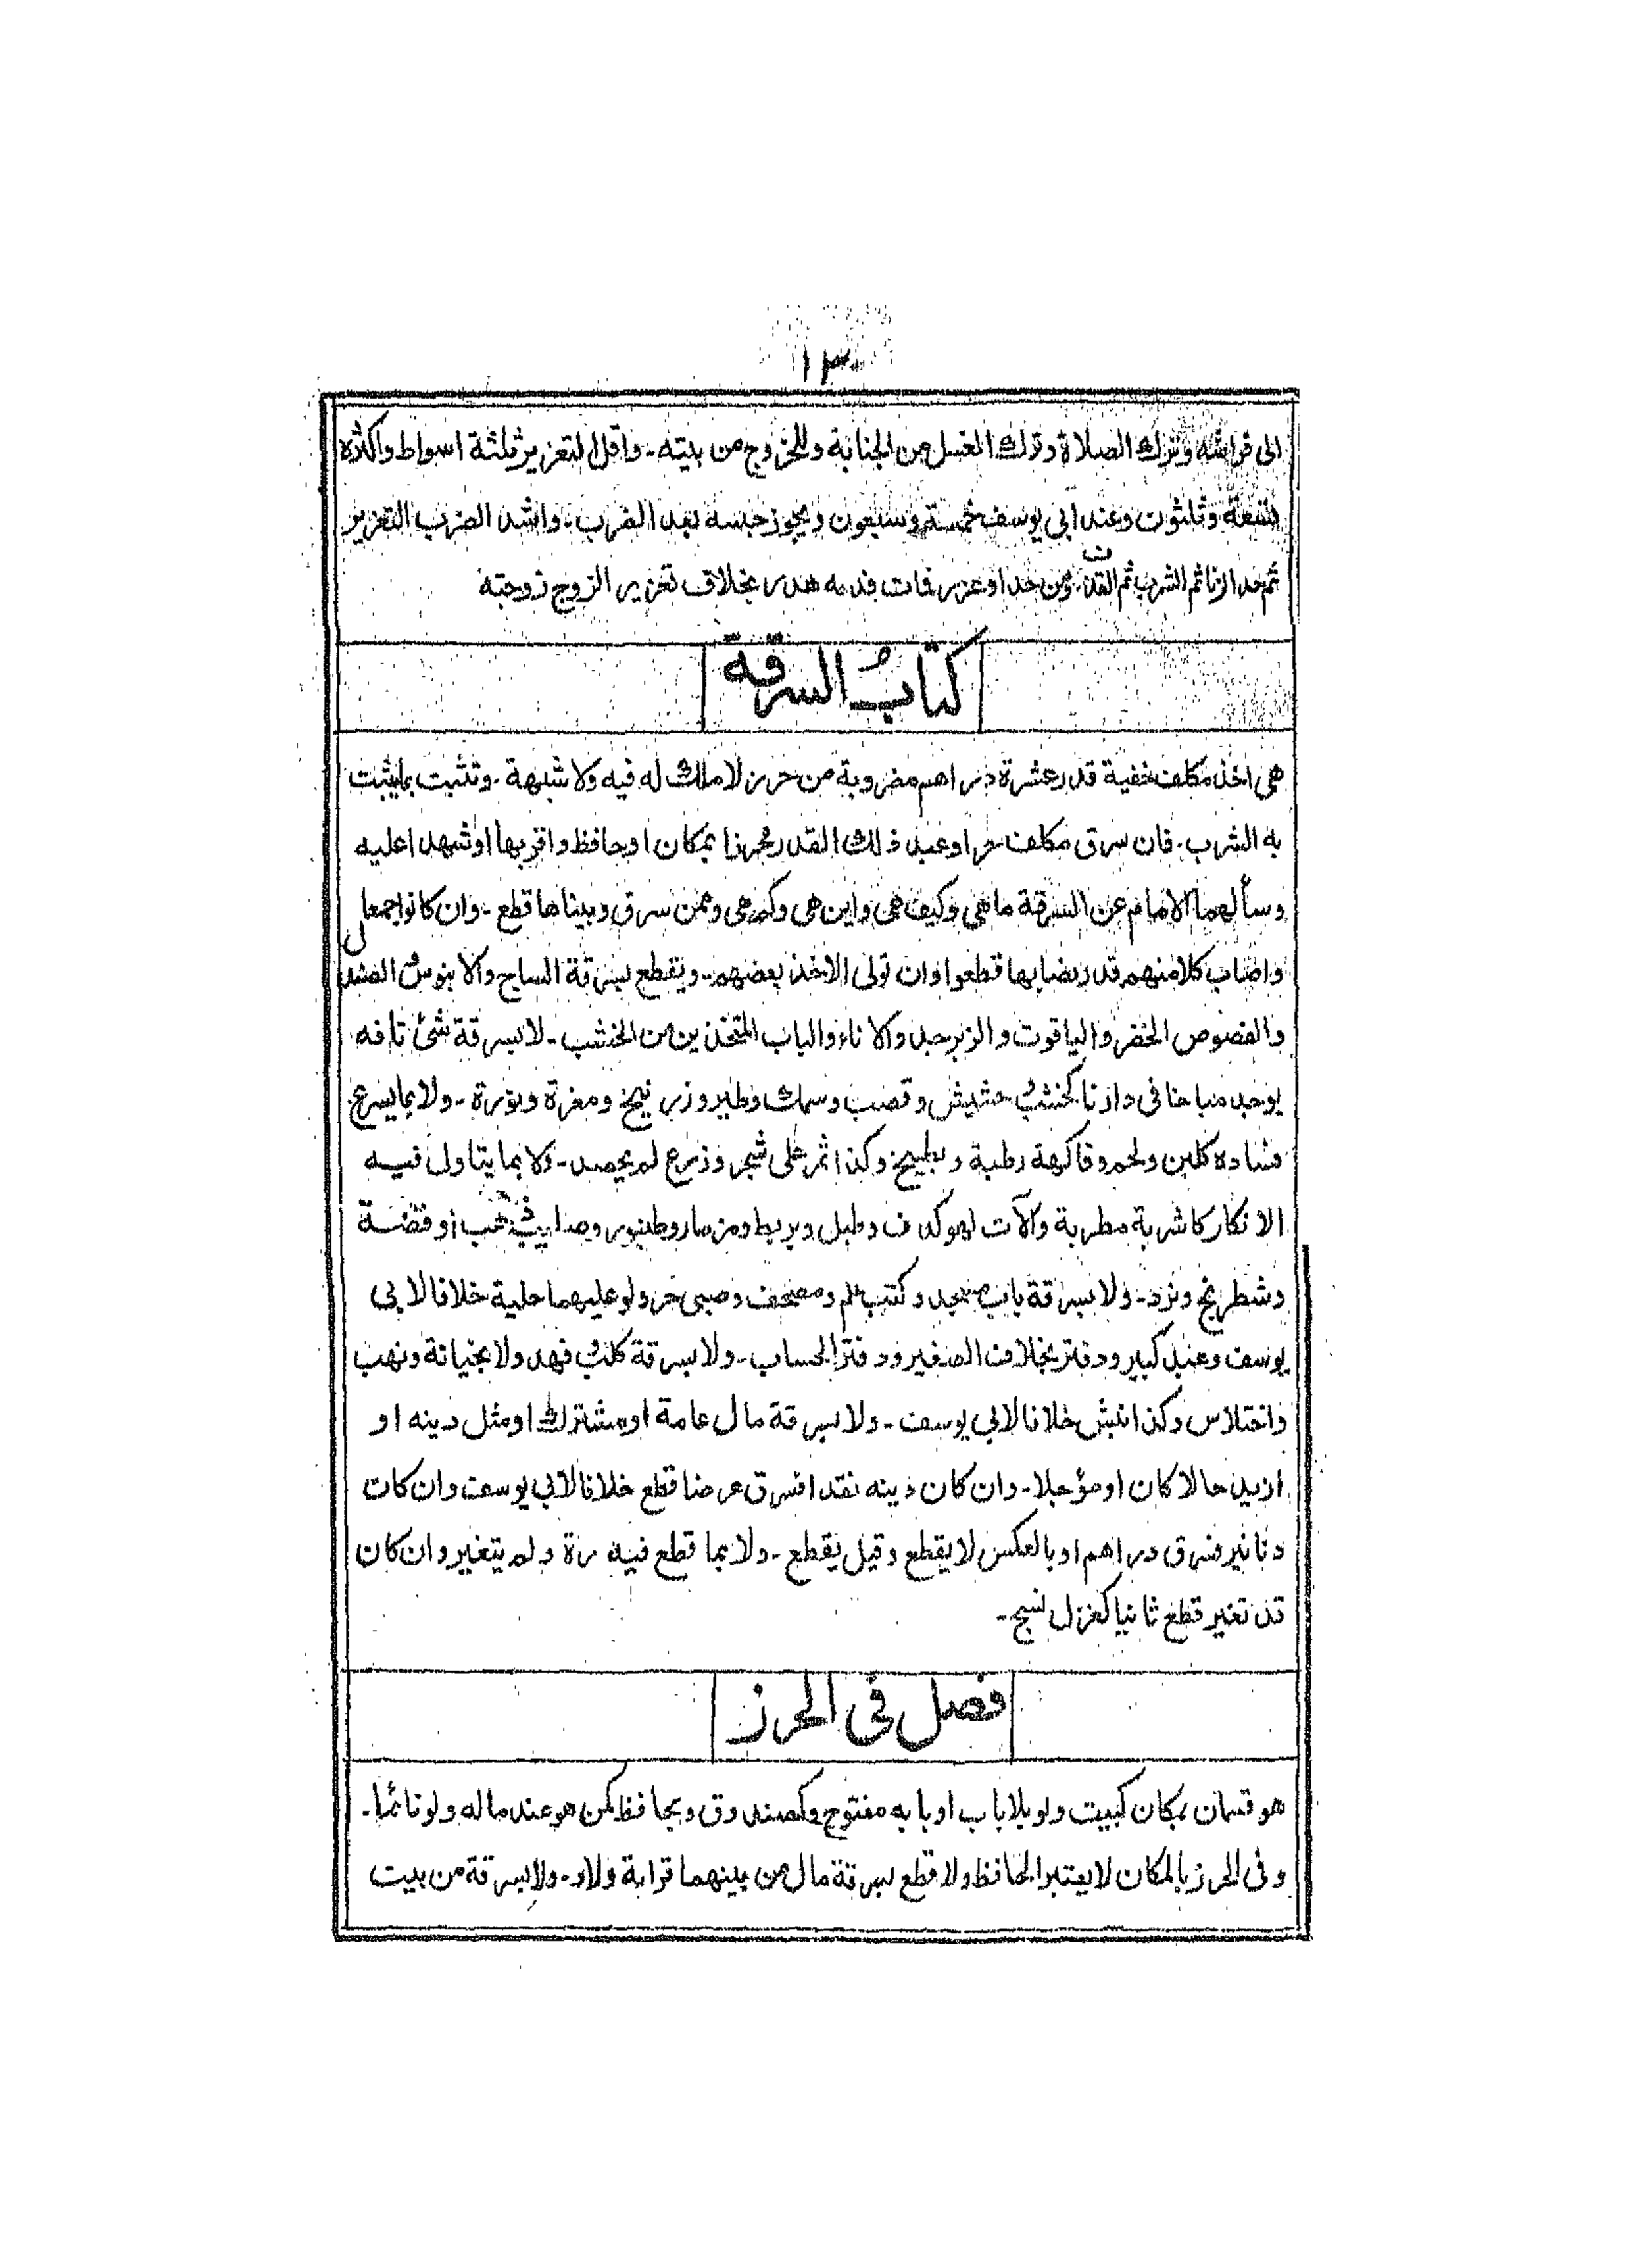 ١٣٠
الى فراشه وترك الصلاة وترك الغسل من الجنابة وللخروج من بيته ـ واقل التعزير ثلثة اسواط واكثره
تسعة وثلثون وعند ابي يوسف خمسة وسبعون ويجوز حبسه بعد الضرب ـ واشد الضرب التعزير
ثم حد الزنا ثم الشرب ثم القذف ـ ومن حد او عزر فمات فدمه هدر بخلاف تعزير الزوج زوجته
كتابُ السرقة
هى اخذ مكلف خفية قدر عشرة دراهم مضروبة من حرز لا ملك له فيه ولا شبهة ـ وتثبت بمايثبت
به الشرب ـ فان سرق مكلف حر او عبد ذلك القدر محرزا بمكان او حافظ واقر بها او شهد اعليه
وسألهما الامام عن السرقة ما هي وكيف هي واين هي وكم هى وممن سرق وبيناها قطع ـ وان كانوا جمعا
واصاب كلا منهم قدر نصابها قطعوا وان تولى الاخذ بعضهم ـ ويقطع بسرقة الساج والابنوس والصندل
والفصوص الخضر والياقوت والزبرجد والاناء والباب المتخذين من الخشب ـ لا بسرقة شئ تافه
يوجد مباحا فى دارنا كخشب وحشيش وقصب وسمك وطير وزرنيخ ومغرة ونورة ـ ولا بما يسرع
فساده كلبن ولحم وفاكهة رطبة وبطيخ وكذا ثمر على شجر وزرع لم يحصد ـ ولا بما يتاول فيه
الانكار كاشربة مطربة وآلات لهو كدف وطبل وبربط ومزمار وطنبور وصليب ذهب او فضة
وشطرنج ونرد ـ ولا بسرقة باب مسجد وكتب علم ومصحف وصبى حر ولو عليهما حلية خلافا لابي
يوسف وعبد كبير ودفتر بخلاف الصغير ودفتر الحساب ـ ولا بسرقة كلب وفهد ولا بخيانة ونهب
واختلاس وكذا نبش خلافا لابي يوسف ـ ولا بسرقة مال عامة او مشترك او مثل دينه او
ازيد حالا كان او مؤجلا ـ وان كان دينه نقدا فسرق عرضا قطع خلافا لابي يوسف وان كان
دنانير فسرق دراهم او بالعكس لا يقطع وقيل يقطع ـ ولا بما قطع فيه مرة ولم يتغير وان كان
قد تغير قطع ثانيا كغزل نسج ـ
فصل فى الحرز
هو قسمان بمكان كبيت ولو بلا باب او بابه مفتوح وكصندوق وبحافظ كمن هو عند ماله ولو نائما ـ
وفى الحرز بالمكان لا يعتبر الحافظ ولا قطع بسرقة مال من بينهما قرابة ولاد ـ ولا بسرقة من بيت